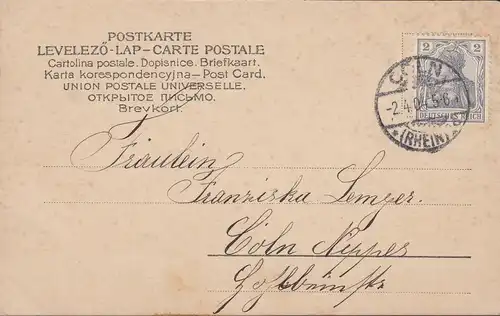 POSTKARTE
LEVELEZŐ-LAP-CARTE POSTALE
Cartolina postale. Dopisnice. Briefkaart.
Karta korespondencyjna-Post Card.
UNION POSTALE UNIVERSELLE.
ОТКРЫТОЕ ПИСЬМО.
Brevkort.
2 2
DEUTSCHES REICH
CÖLN
2.4.04. 5-6
(RHEIN)
Fräulein
Franziska Lemger.
Cöln Nippes